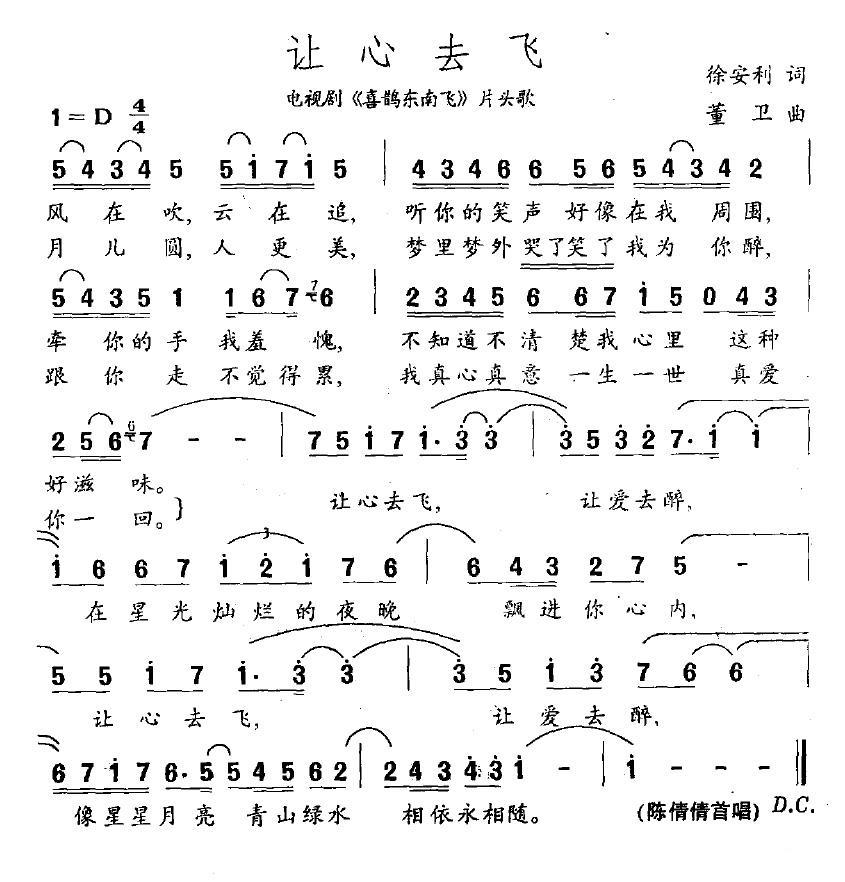 让心去飞
徐安利 词
电视剧《喜鹊东南飞》片头歌
1=D 4/4
董 卫 曲
5 4 3 4 5 5 1 7 1 5 | 4 3 4 6 6 5 6 5 4 3 4 2 |
风 在 吹, 云 在 追, 听你的笑声 好像在我 周围,
月 儿 圆, 人 更 美, 梦里梦外 哭了笑了我为 你醉,
5 4 3 5 1 1 6 7 7 6 | 2 3 4 5 6 6 7 1 5 0 4 3
牵 你的手 我羞 愧, 不知道不清 楚我心里 这种
跟 你 走 不觉得累, 我真心真意 一生一世 真爱
2 5 6 6 7 - - | 7 5 1 7 1· 3 3 | 3 5 3 2 7· 1 1
好滋 味。
让心去飞, 让爱去醉,
你一 回。}
3
1 6 6 7 1 2 1 7 6 | 6 4 3 2 7 5 -
在星光灿烂的夜晚 飘进你心内,
5 5 1 7 1· 3 3 | 3 5 1 3 7 6 6
让心去飞, 让爱去醉,
6 7 1 7 6· 5 5 4 5 6 2 | 2 4 3 4 3 1 - | 1 - - ‖
像星星月亮 青山绿水 相依永相随。
(陈倩倩首唱) D.C.